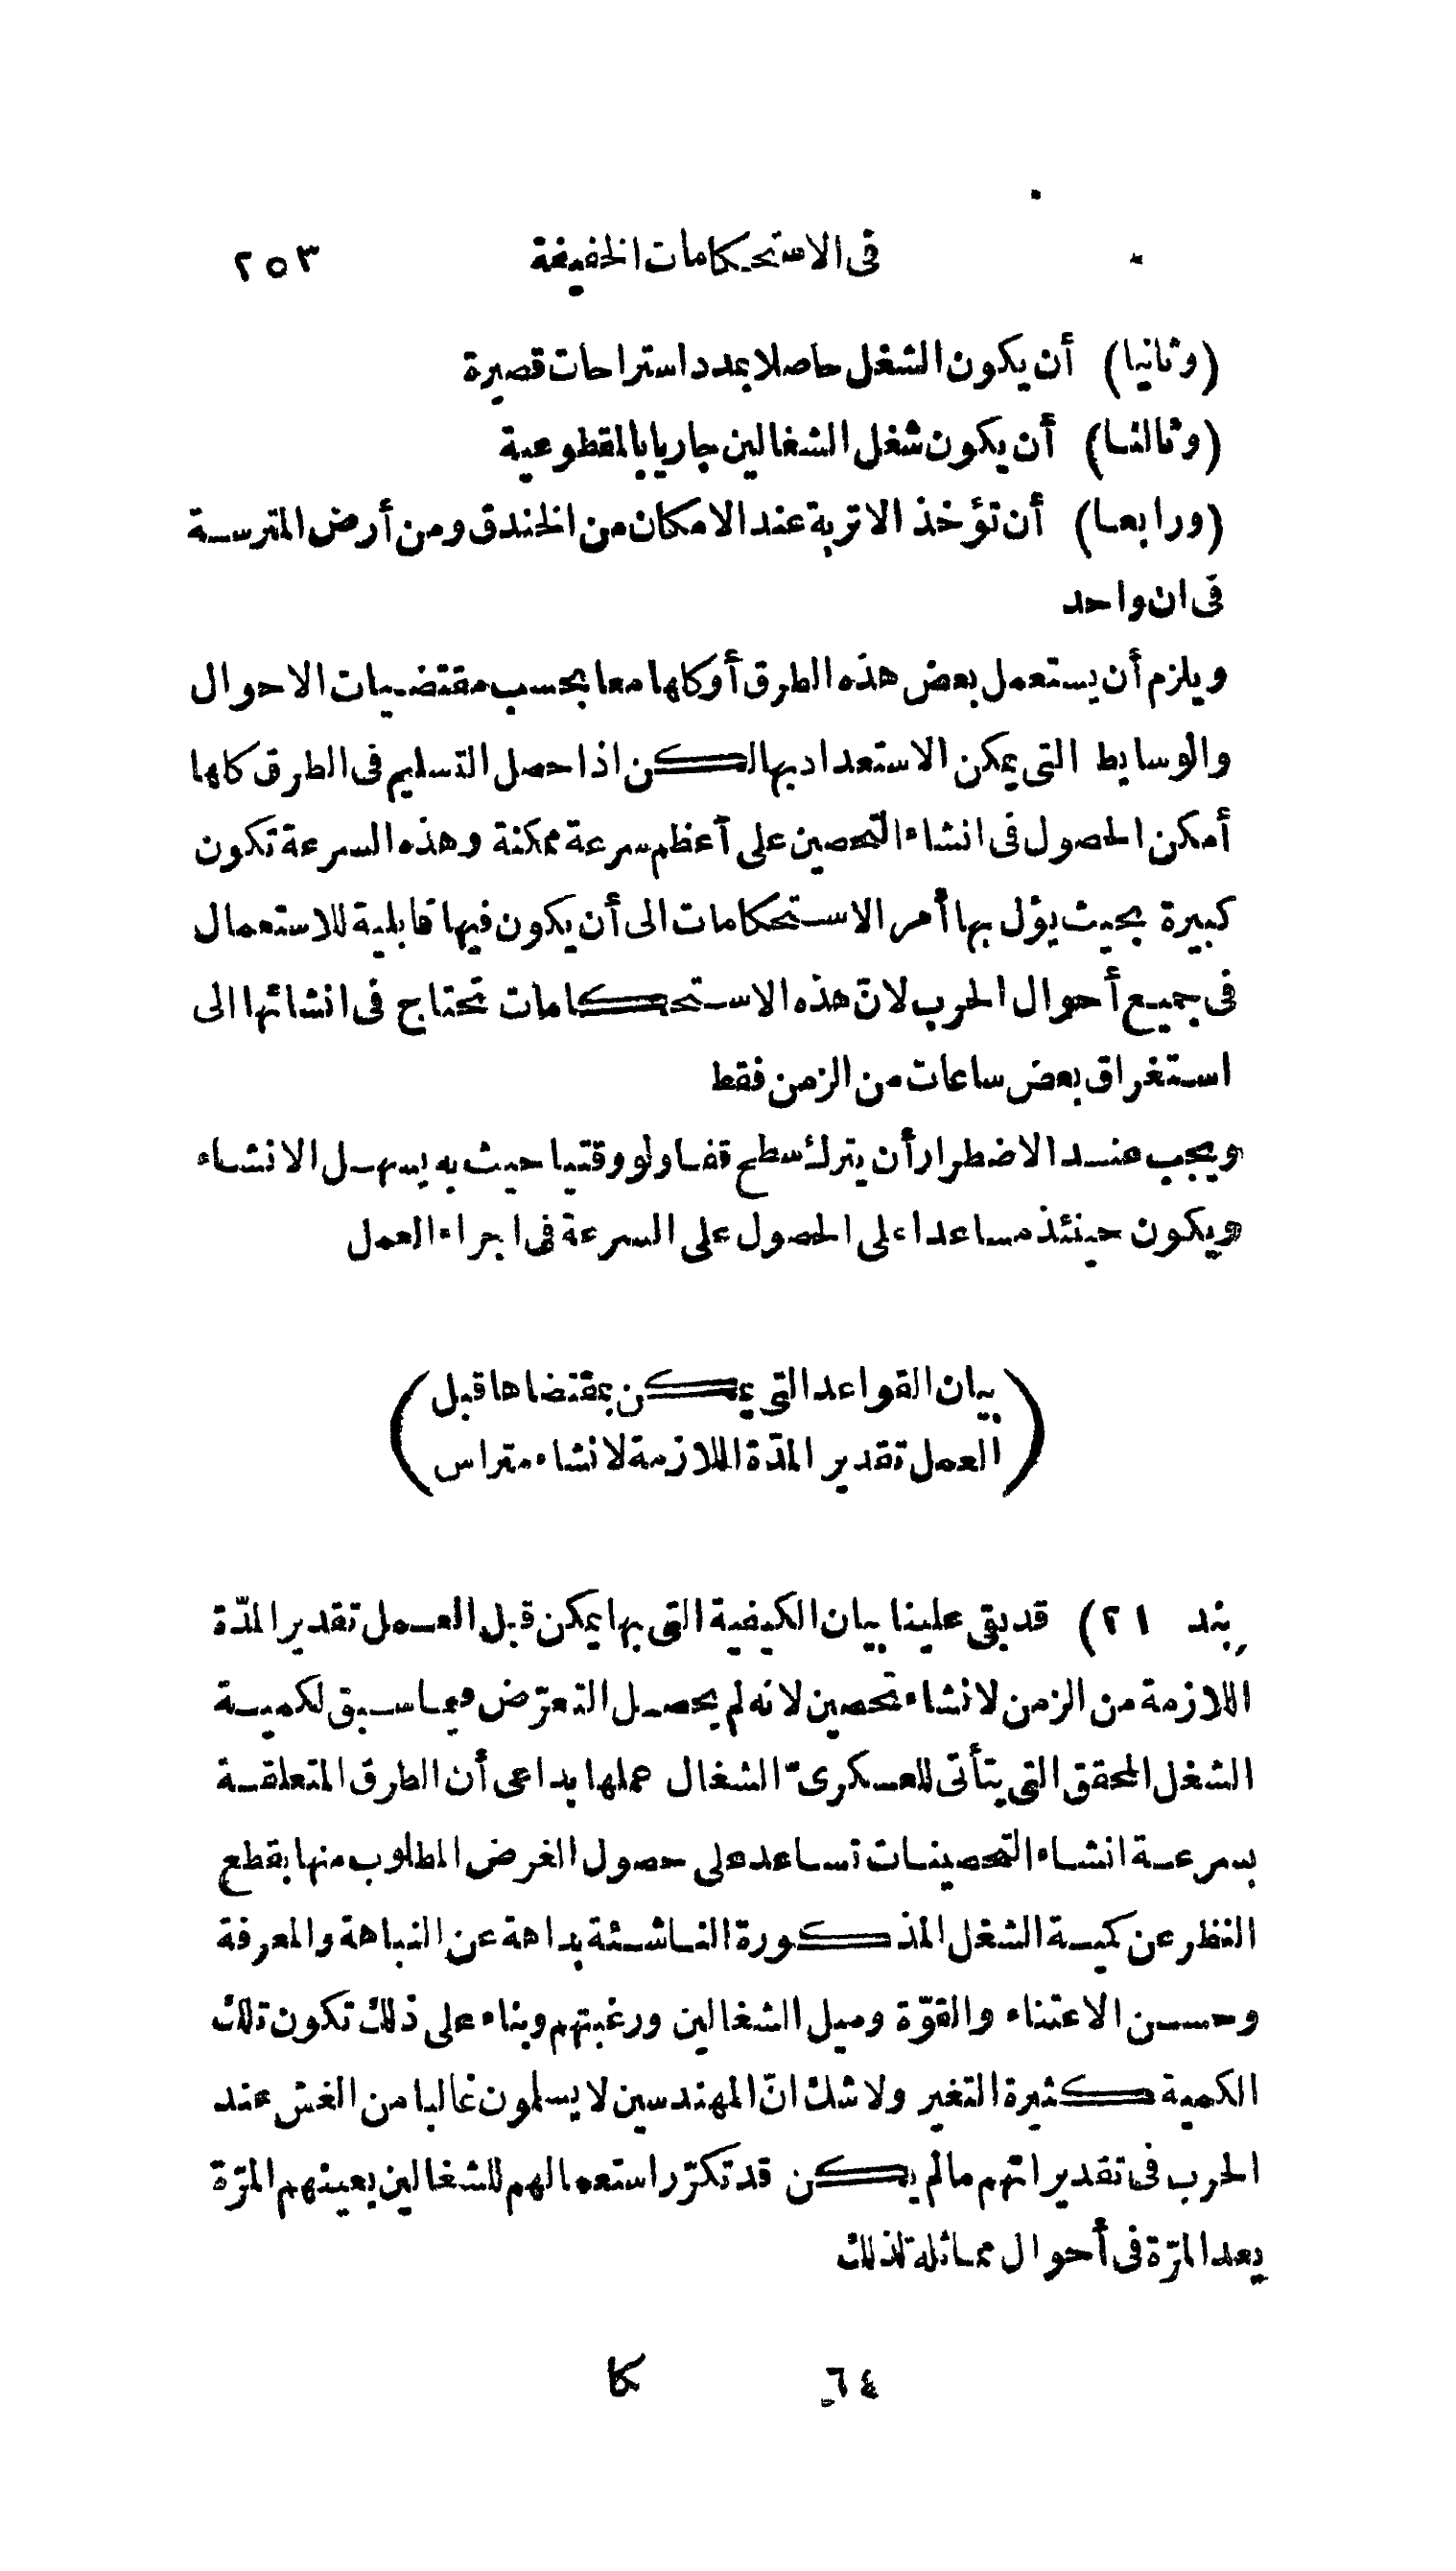 فى الاستحكامات الخفيفة ٢٥٣
(وثانيا) أن يكون الشغل حاصلا بمدد استراحات قصيرة
(وثالثا) أن يكون شغل الشغالين جاريا بالمقطوعية
(ورابعا) أن تؤخذ الاتربة عند الامكان من الخندق ومن أرض المترسة
فى ان واحد
ويلزم أن يستعمل بعض هذه الطرق أو كلها معا بحسب مقتضيات الاحوال
والوسايط التى يمكن الاستعداد بها لكن اذا حصل التسليم فى الطرق كلها
أمكن الحصول فى انشاء التحصين على أعظم سرعة ممكنة وهذه السرعة تكون
كبيرة بحيث يؤل بها أمر الاستحكامات الى أن يكون فيها قابلية للاستعمال
فى جميع أحوال الحرب لانّ هذه الاستحكامات تحتاج فى انشائها الى
استغراق بعض ساعات من الزمن فقط
ويجب عند الاضطرار أن يترك سطح قفا ولو وقتيا حيث به يسهل الانشاء
ويكون حينئذ مساعدا على الحصول على السرعة فى اجراء العمل
(بيان القواعد التى يمكن بمقتضاها قبل
العمل تقدير المدّة اللازمة لانشاء متراس)
بند ٢١) قد بقى علينا بيان الكيفية التى بها يمكن قبل العمل تقدير المدّة
اللازمة من الزمن لانشاء تحصين لانه لم يحصل التعرّض فيما سبق لكمية
الشغل المحقق التى يتأتى للعسكرىّ الشغال عملها بداعى أن الطرق المتعلقة
بسرعة انشاء التحصينات تساعد على حصول الغرض المطلوب منها بقطع
النظر عن كمية الشغل المذكورة الناشئة بداهة عن النباهة والمعرفة
وحسن الاعتناء والقوّة وميل الشغالين ورغبتهم وبناء على ذلك تكون تلك
الكمية كثيرة التغير ولا شك انّ المهندسين لا يسلمون غالبا من الغش عند
الحرب فى تقديراتهم ما لم يكن قد تكرّر استعمالهم للشغالين بعينهم المرّة
بعد المرّة فى أحوال مماثلة لذلك
٦٤ كا